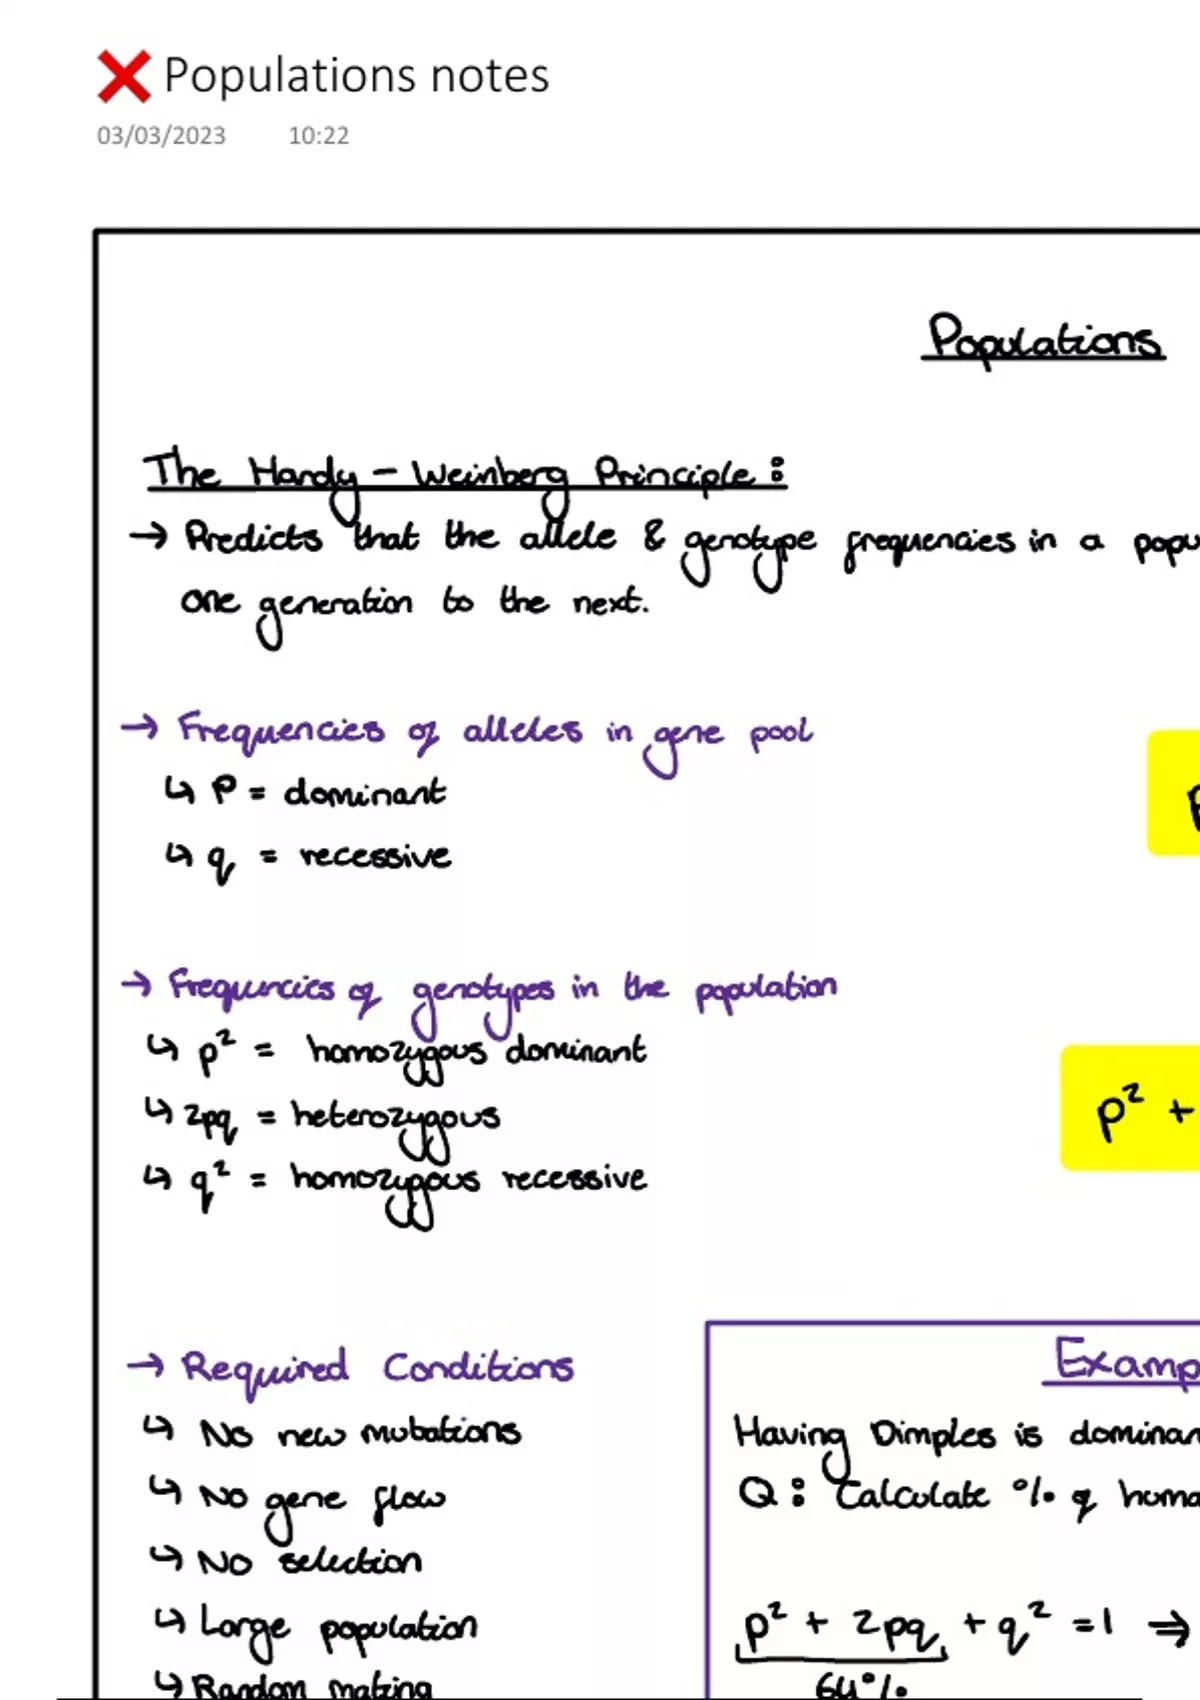 ❌ Populations notes
03/03/2023 10:22
Populations
The Hardy-Weinberg Principle:
→ Predicts that the allele & genotype frequencies in a popu
one generation to the next.
→ Frequencies of alleles in gene pool
↳ P = dominant
↳ q = recessive
→ Frequencies of genotypes in the population
↳ p² = homozygous dominant
p² +
↳ 2pq = heterozygous
↳ q² = homozygous recessive
→ Required Conditions
↳ No new mutations
↳ No gene flow
↳ No selection
↳ Large population
↳ Random mating
Examp
Having Dimples is dominan
Q: Calculate % of homo
p² + 2pq + q² = 1 ⇒
64%